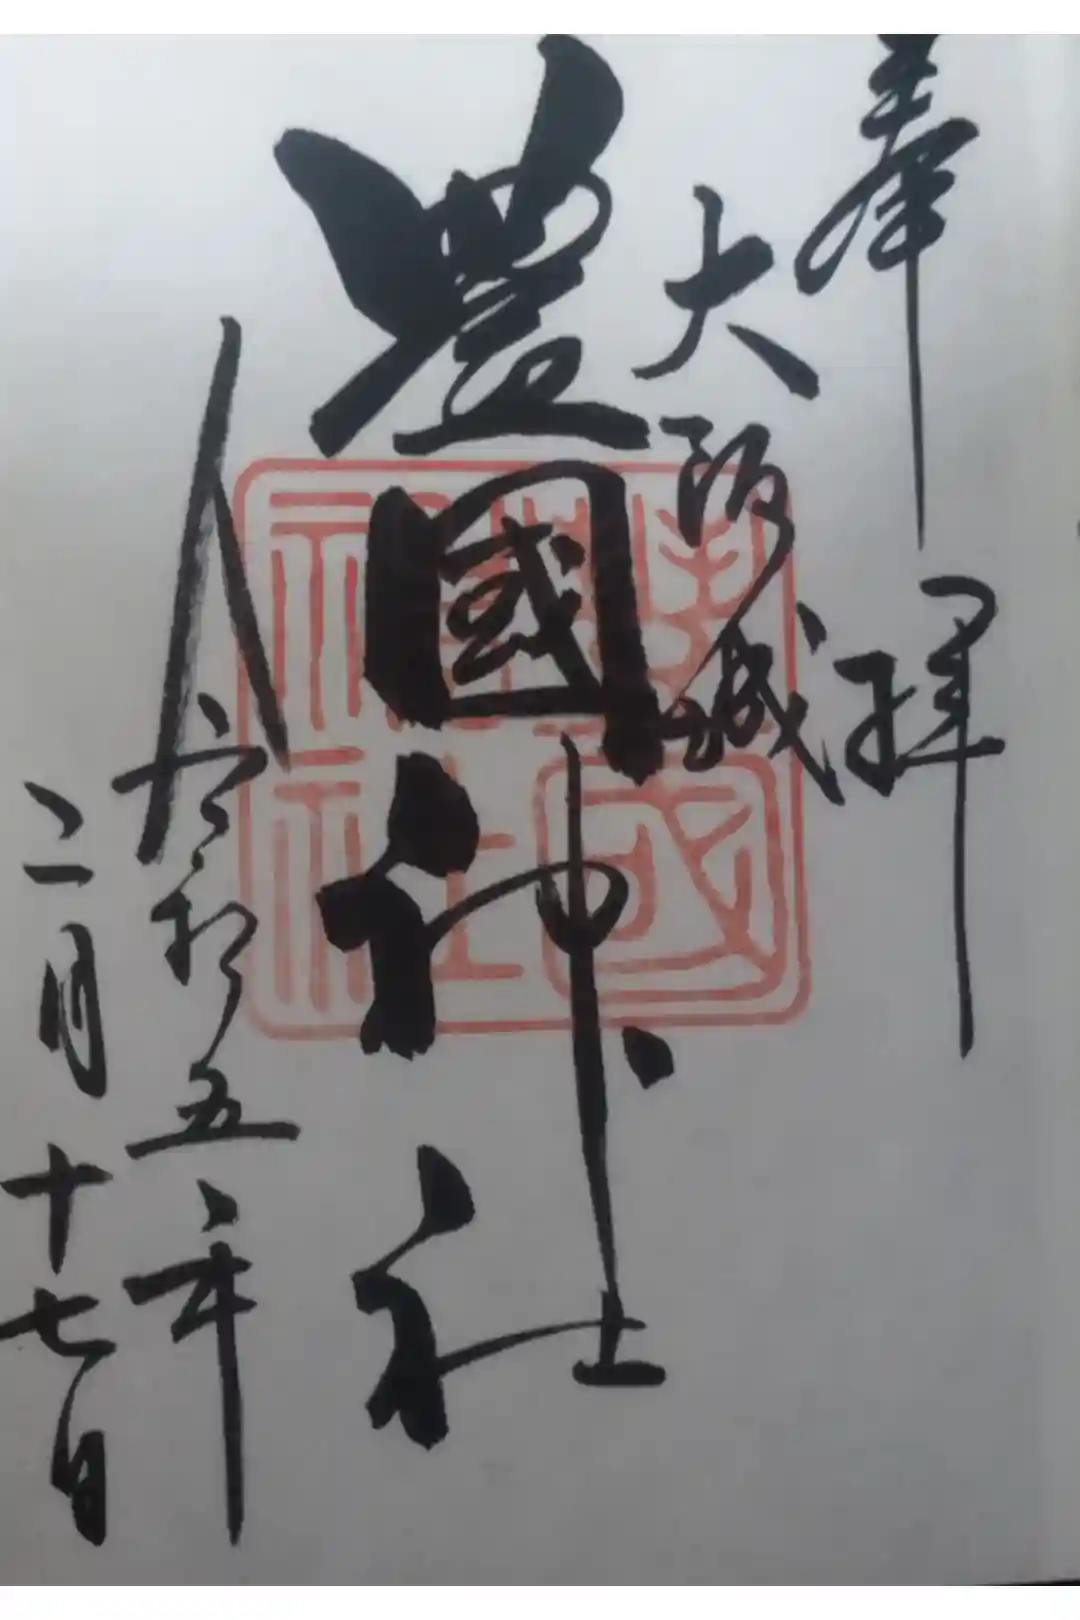 奉拝
大阪城
豊國神社
令和五年
二月十七日
豊國神社